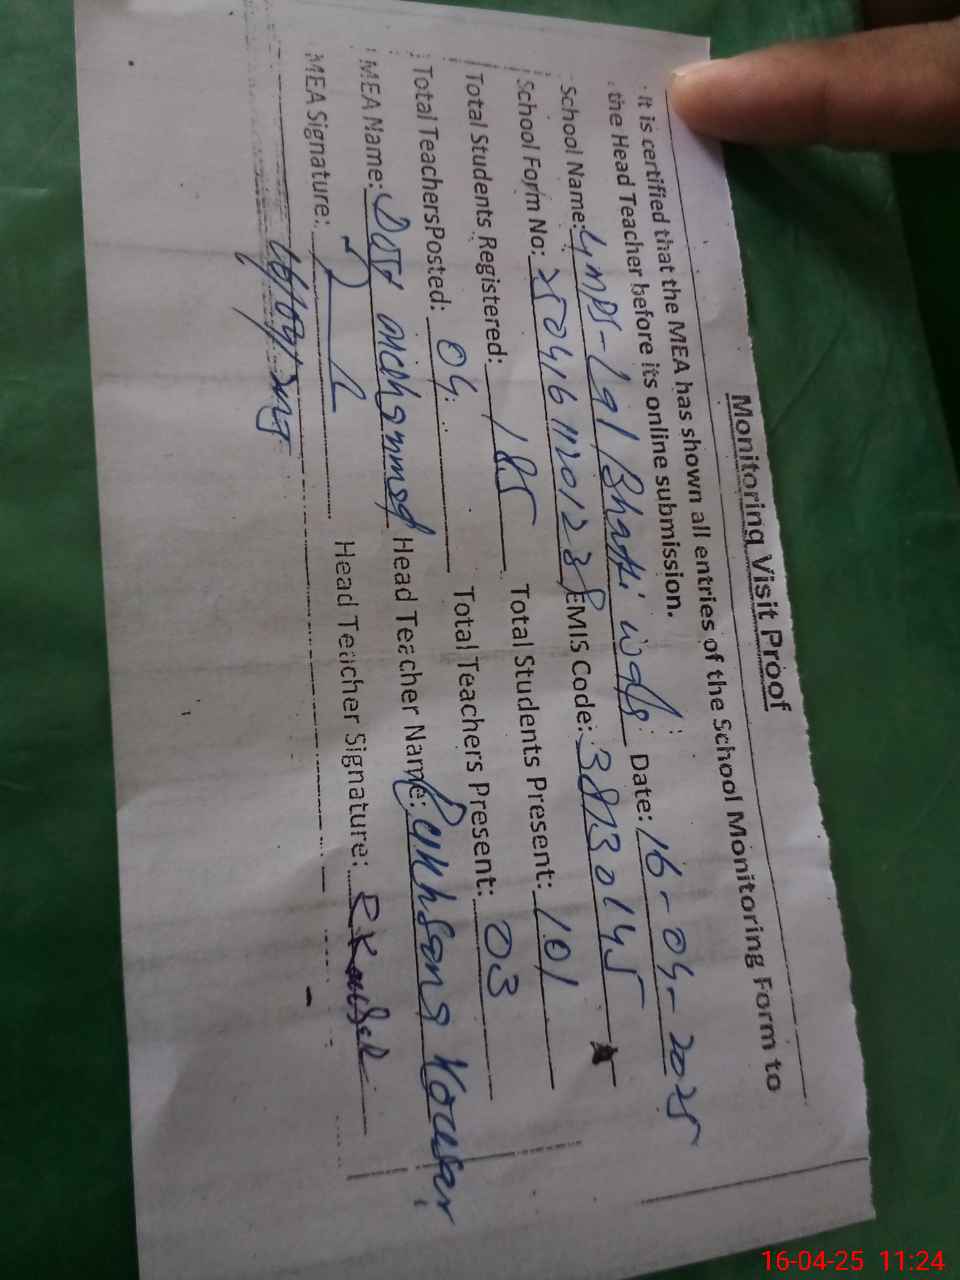 Monitoring Visit Proof
It is certified that the MEA has shown all entries of the School Monitoring Form to
the Head Teacher before its online submission.
School Name: GMPS-Lal Bhatti wala Date: 16-04-2025
School Form No: EMIS Code: 38130145
Total Students Registered: 185 Total Students Present: 101
Total TeachersPosted: 04 Total Teachers Present: 03
MEA Name: Dost Mohammad Head Teacher Name: Rukhsana Kousar
MEA Signature: Head Teacher Signature: RKousar
16-04-25 11:24